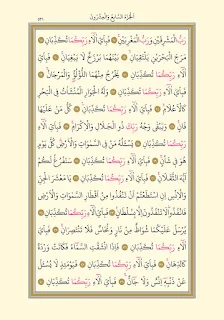 الجزء السابع والعشرون ٥٣١
رب المشرقين ورب المغربين فبأي آلاء ربكما تكذبان
مرج البحرين يلتقيان بينهما برزخ لا يبغيان فبأي
آلاء ربكما تكذبان يخرج منهما اللؤلؤ والمرجان
فبأي آلاء ربكما تكذبان وله الجوار المنشآت في البحر
كالأعلام فبأي آلاء ربكما تكذبان كل من عليها
فان ويبقى وجه ربك ذو الجلال والإكرام فبأي
آلاء ربكما تكذبان يسئله من في السموات والأرض كل يوم
هو في شأن فبأي آلاء ربكما تكذبان سنفرغ لكم
أيه الثقلان فبأي آلاء ربكما تكذبان يا معشر الجن
والإنس إن استطعتم أن تنفذوا من أقطار السموات والأرض
فانفذوا لا تنفذون إلا بسلطان فبأي آلاء ربكما تكذبان
يرسل عليكما شواظ من نار ونحاس فلا تنتصران فبأي
آلاء ربكما تكذبان فإذا انشقت السماء فكانت وردة
كالدهان فبأي آلاء ربكما تكذبان فيومئذ لا يسئل
عن ذنبه إنس ولا جان فبأي آلاء ربكما تكذبان